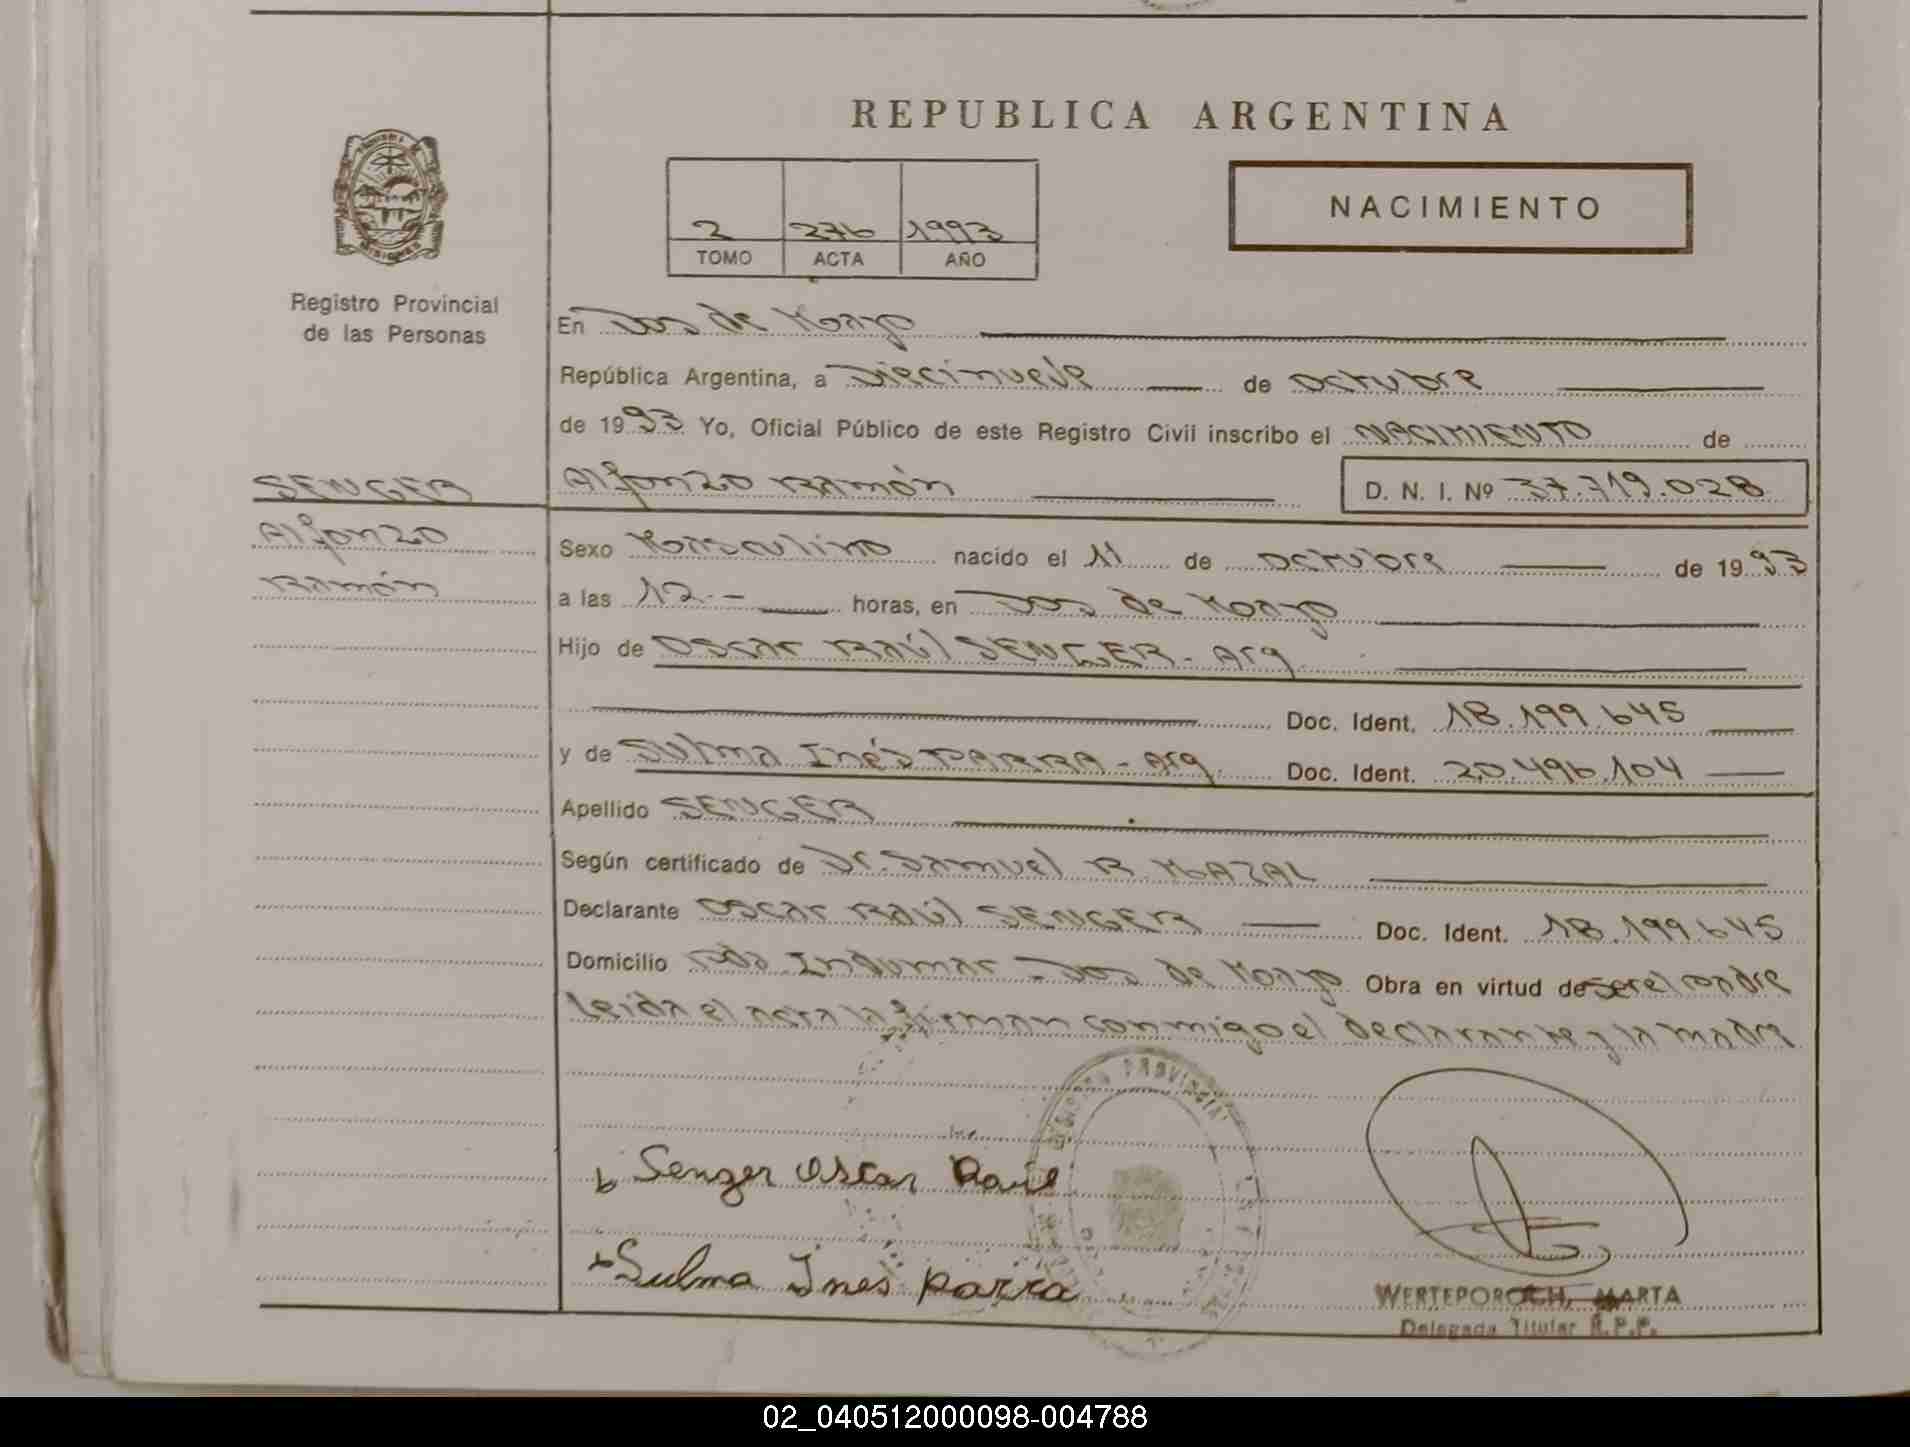 REPUBLICA ARGENTINA
NACIMIENTO
2 276 1993
TOMO ACTA AÑO
Registro Provincial
de las Personas
En Dos de Mayo
República Argentina, a Diecinueve de octubre
de 1993 Yo, Oficial Público de este Registro Civil inscribo el NACIMIENTO de
SENGER
Alfonzo Ramón D. N. I. Nº 37.719.028
Alfonzo
Ramón
Sexo Masculino nacido el 11 de octubre de 1993
a las 12.- horas, en Dos de Mayo
Hijo de Oscar Raúl SENGER - Arg.
Doc. Ident. 18.199.645
y de Sulma Inés PARRA - Arg. Doc. Ident. 20.496.104
Apellido SENGER
Según certificado de Dr. Samuel R MAZAL
Declarante Oscar Raúl SENGER Doc. Ident. 18.199.645
Domicilio Indumar - Dos de Mayo Obra en virtud de ser el padre
Leída el acta la firman conmigo el declarante y la madre
PROVINCIAL
Senger Oscar Raul
Sulma Ines parra
WERTEPOROCH, MARTA
Delegada Titular R.P.P.
02_040512000098-004788